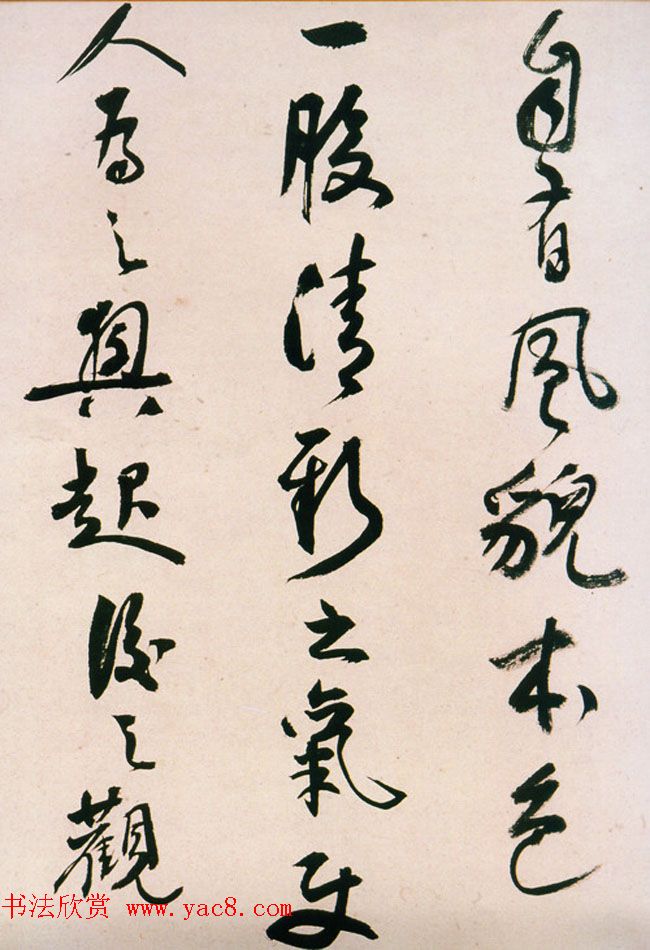 自有風貌本色
一股清新之氣使
人為之興起後之觀
书法欣赏 www.yac8.com